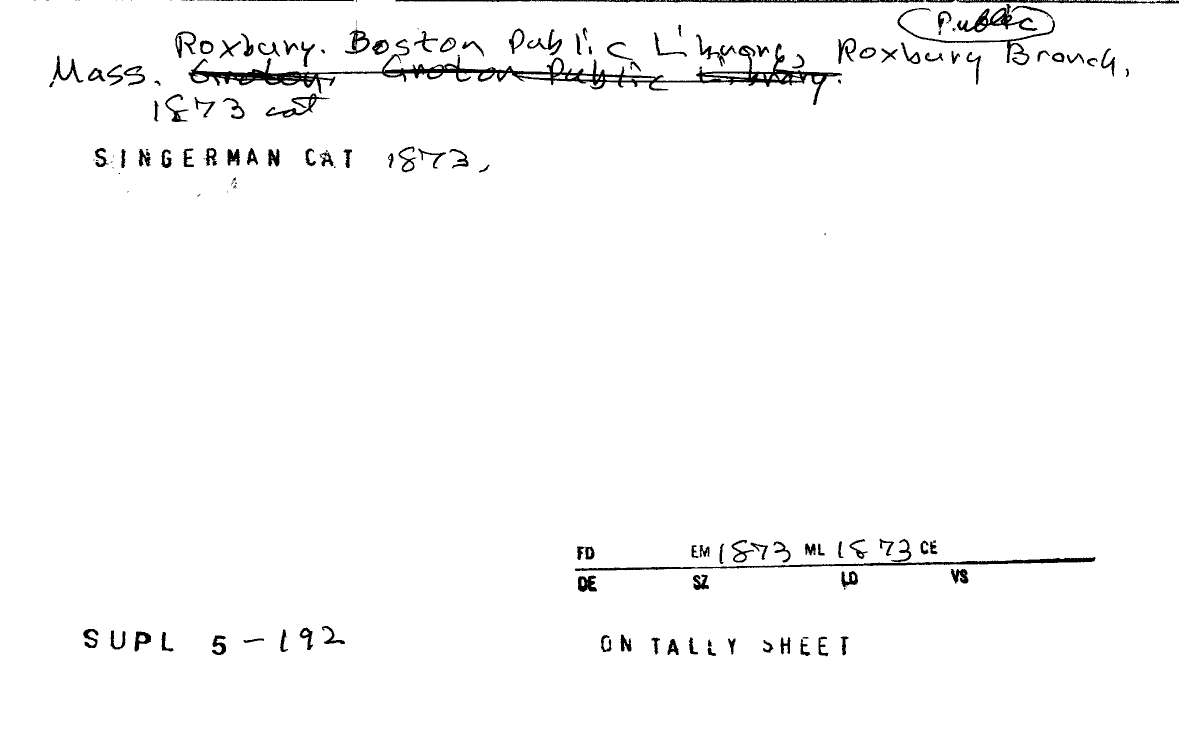 Public
Roxbury. Boston Public Library, Roxbury Branch,
Mass. Groton, Groton Public Library.
1873 cat
SINGERMAN CAT 1873,
FD EM 1873 ML 1873 CE
DE SZ LD VS
SUPL 5-192
ON TALLY SHEET